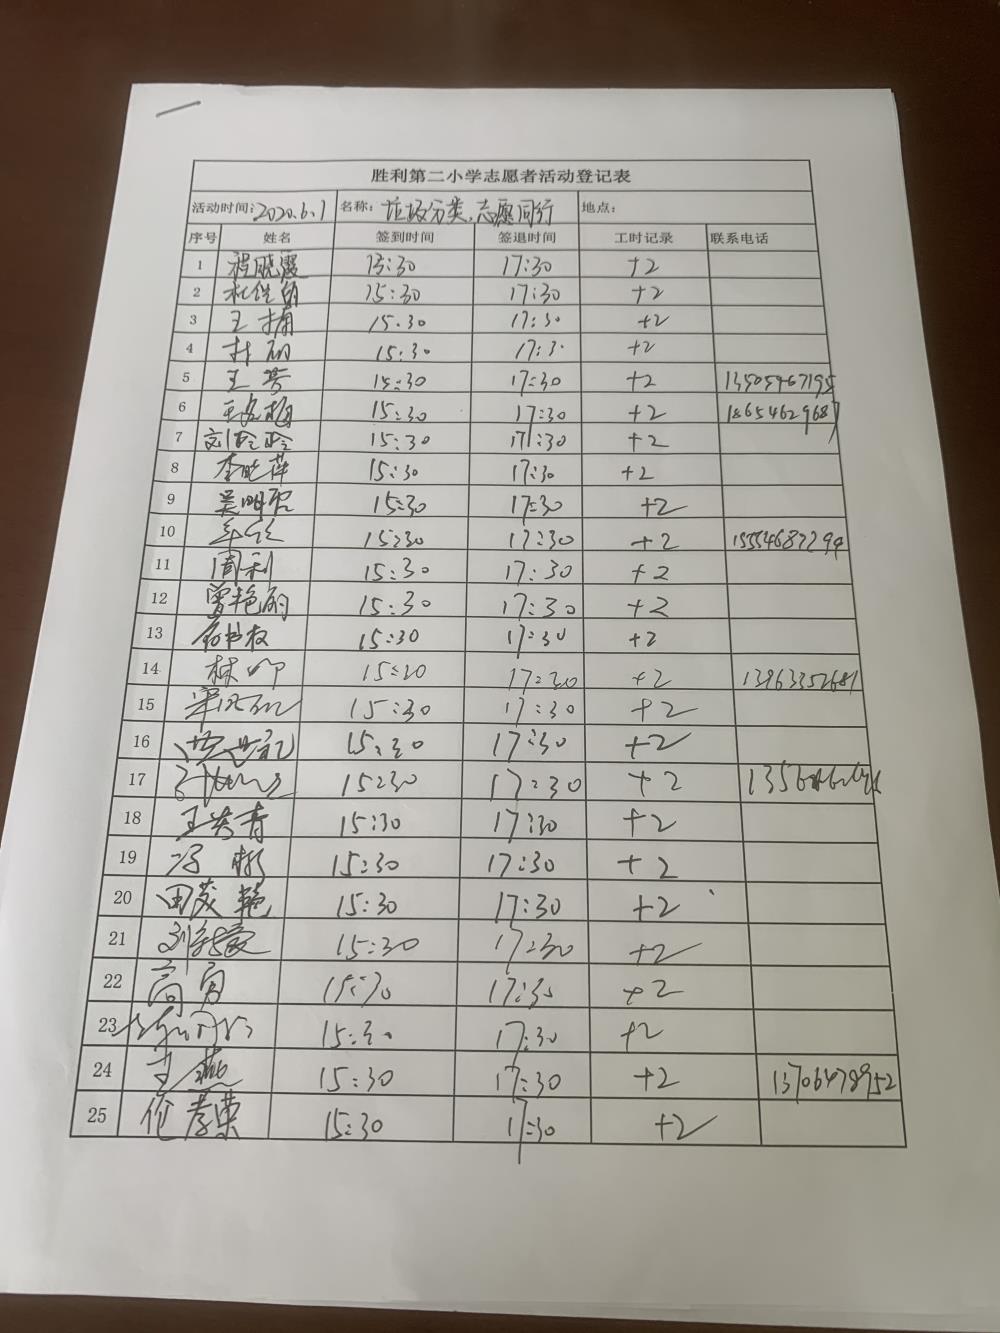 胜利第二小学志愿者活动登记表
活动时间:2020.6.1 名称:垃圾分类,志愿同行 地点:
序号 姓名 签到时间 签退时间 工时记录 联系电话
1 程晓霞 15:30 17:30 +2
2 15:30 17:30 +2
3 王 15.30 17:30 +2
4 15:30 17:3 +2
5 王芳 15:30 17:30 +2 13505467195
6 15:30 17:30 +2 18654629687
7 刘玲玲 15:30 17:30 +2
8 李晓萍 15:30 17:30 +2
9 吴明 15:30 17:30 +2
10 15:30 17:30 +2 15554687294
11 周利 15:30 17:30 +2
12 曾艳丽 15:30 17:30 +2
13 15:30 17:30 +2
14 林 15:30 17:30 +2 13963352681
15 15:30 17:30 +2
16 15:30 17:30 +2
17 15:30 17:30 +2
18 王秀青 15:30 17:30 +2
19 冯彬 15:30 17:30 +2
20 田茂艳 15:30 17:30 +2
21 刘 15:30 17:30 +2
22 高勇 15:30 17:30 +2
23 15:30 17:30 +2
24 王燕 15:30 17:30 +2 13706478952
25 伦孝荣 15:30 17:30 +2